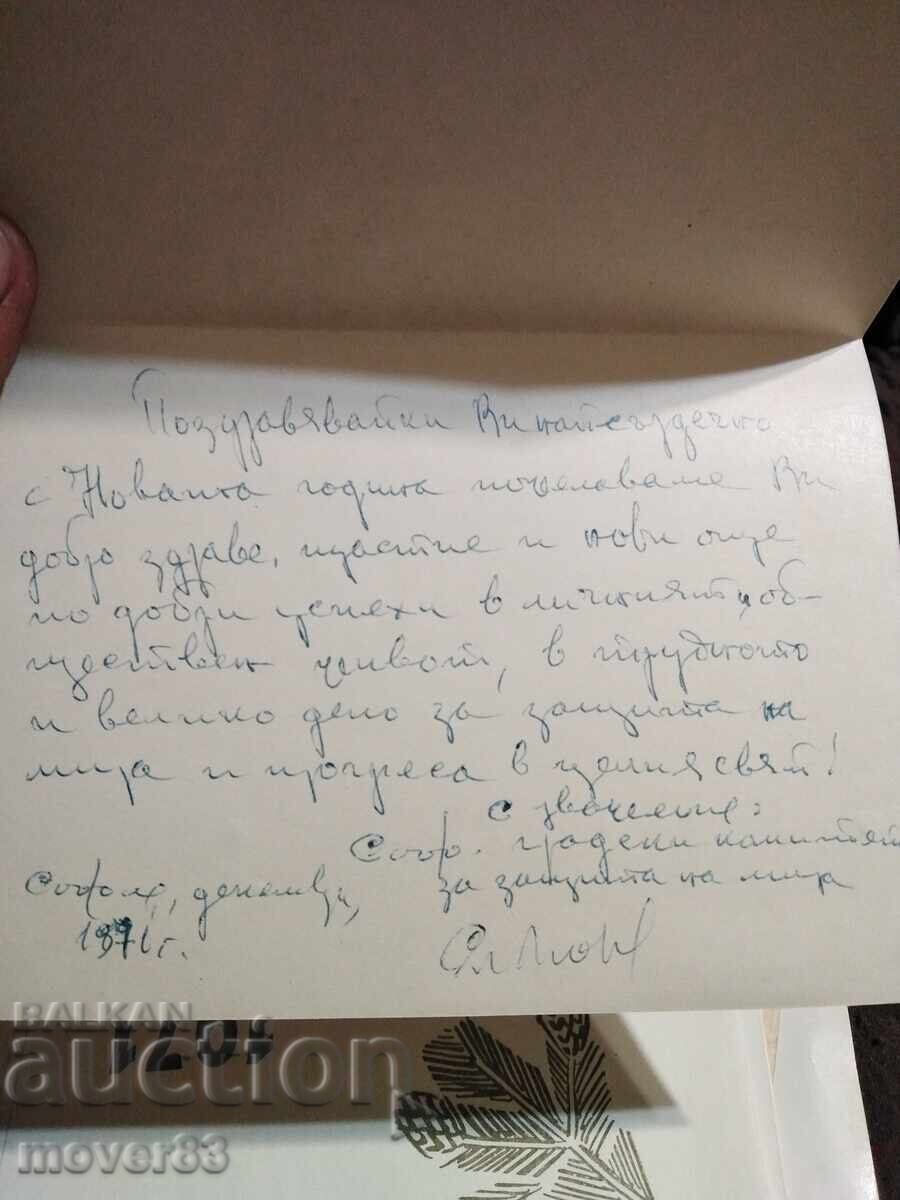 Поздравявайки Ви най сърдечно
с Новата година пожелаваме Ви
добро здраве, щастие и нови още
по добри успехи в личният и об-
ществен живот, в трудното
и велико дело за защита на
мира и прогреса в целия свят!
С уважение:
Соф. градски комитет
за защита на мира
София, декември,
1971 г.
BALKAN
auction
mover83